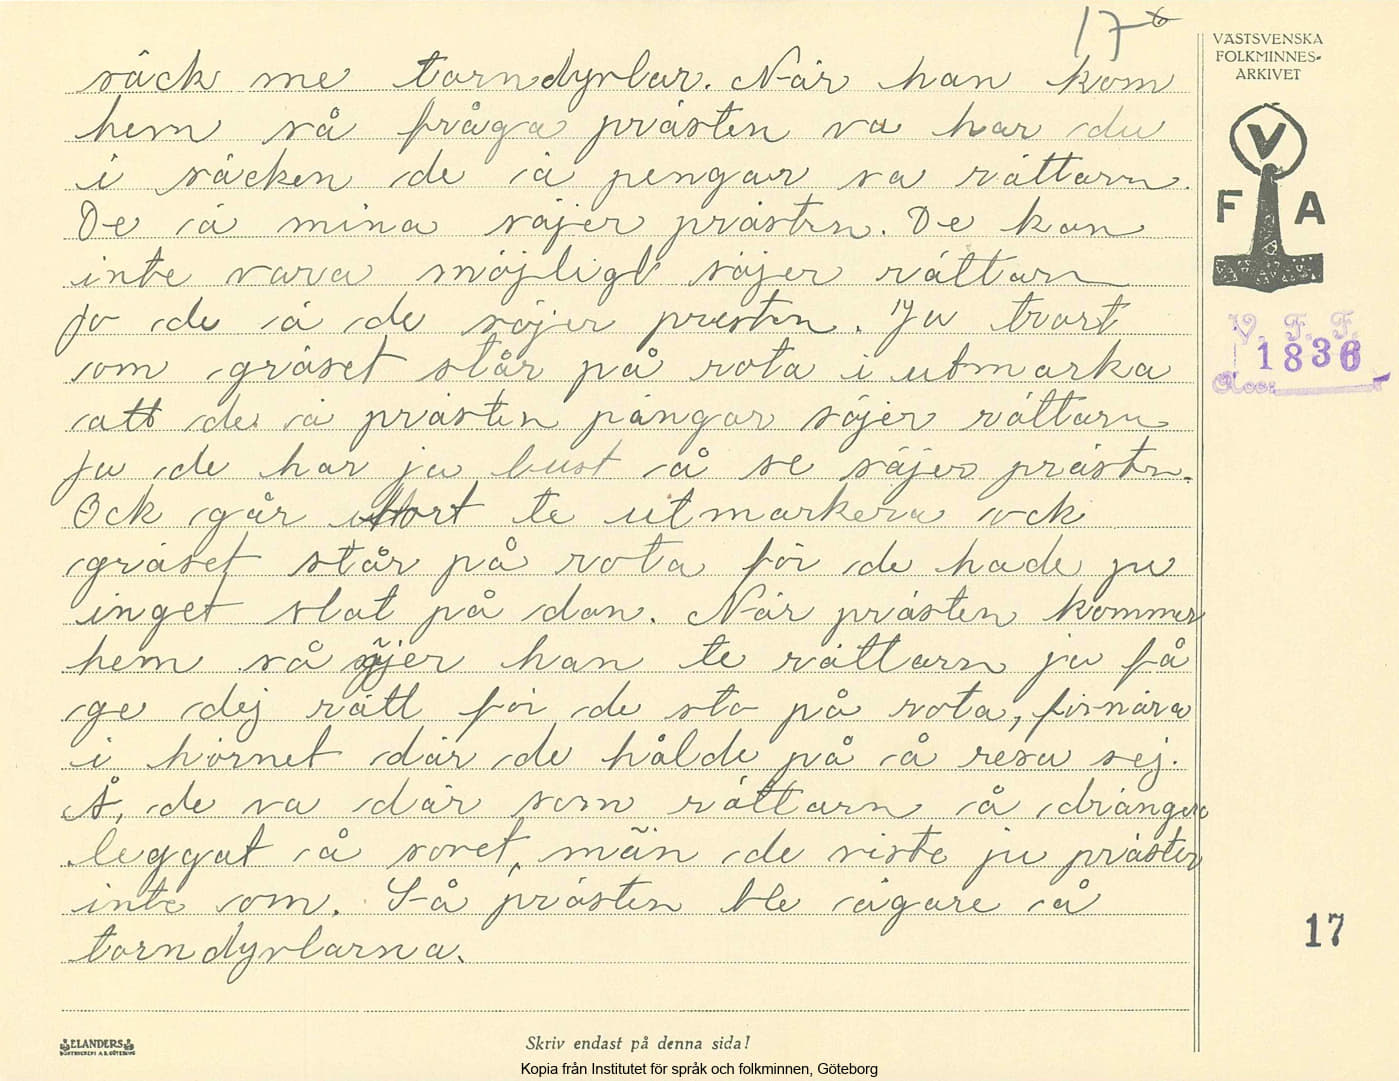 17
VÄSTSVENSKA
FOLKMINNES-
ARKIVET
V
F A
V. F. F.
1836
säck me torndyvlar. När han kom
hem så fråga prästen va har du
i säcken de ä pengar sa rättarn.
De ä mina säjer prästen. De kan
inte vara möjligt säjer rättarn
jo de ä de säjer prästen. Ja tvart
om gräset står på rota i utmarka
att de ä prästen pängar säjer rättarn
ja de har ja lust å se säjer prästn.
Ock går bort te utmarkera ock
gräset står på rota för de hade ju
inget slat på dan. När prästen kommer
hem så säjer han te rättarn ja få
ge dej rätt för de sto på rota, förnära
i hörnet där de hålde på å resa sej.
Å, de va där som rättarn å drängera
leggat å sovet, män de viste ju prästen
inte om. Så prästen ble ägare å
torndyvlarna.
17
ELANDERS
BOKTRYCKERI A.B. GÖTEBORG
Skriv endast på denna sida!
Kopia från Institutet för språk och folkminnen, Göteborg